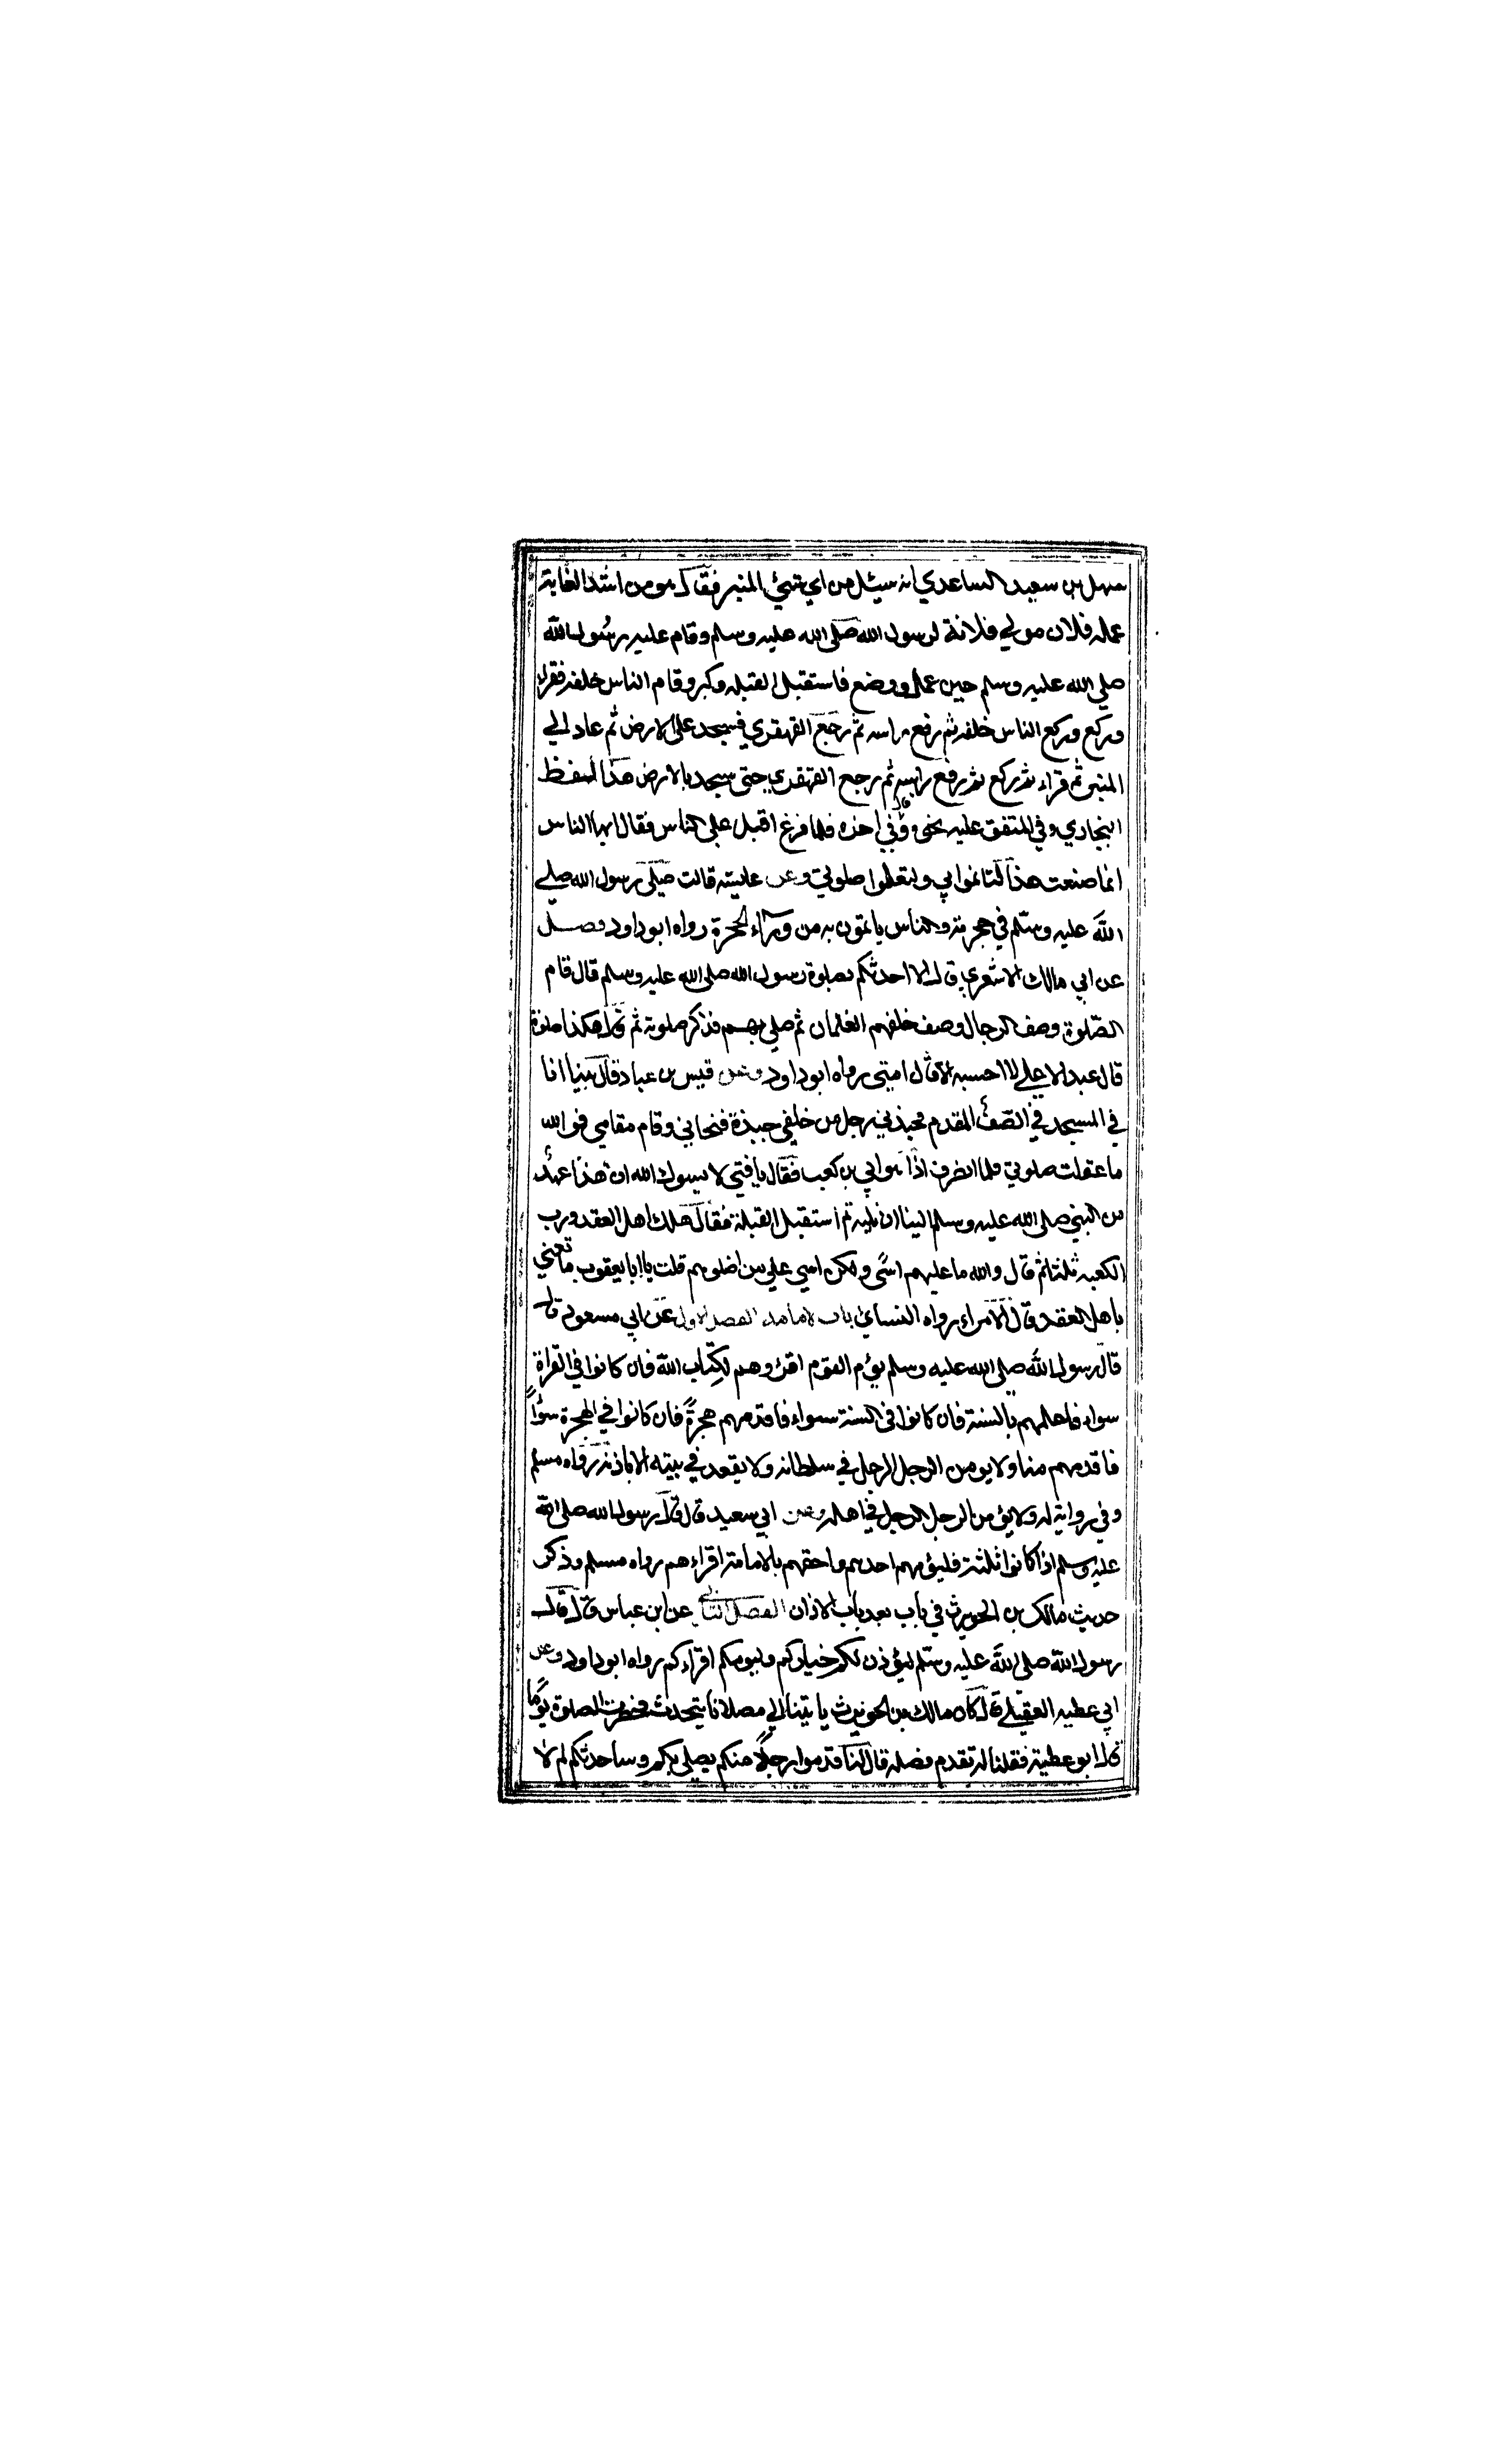 سهل بن سعيد الساعدي انه سيئل من اي شئ المنبر فقال هو من اثل الغابة
عمله فلان مولي فلانة لرسول الله صلي الله عليه وسلم وقام عليه رسول الله
صلي الله عليه وسلم حين عمل ووضع فاستقبل القبله وكبر وقام الناس خلفه فقراء
وركع وركع الناس خلفه ثم رفع راسه ثم رجع القهقري فسجد علي الارض ثم عاد الي
المنبر ثم قراء ثم ركع ثم رفع راسه ثم رجع القهقري حتي سجد بالارض هذا لفظ
البخاري وفي المتفق عليه نحوه وقال في اخره فلما فرغ اقبل علي الناس فقال ايها الناس
انما صنعت هذا لتاتموا بي ولتعلموا صلوتي وعن عايشه قالت صلي رسول الله صلي
الله عليه وسلم في حجرته والناس ياتمون به من وراء الحجرة رواه ابو داود فصل
عن ابي مالك الاشعري قال الا احدثكم بصلوة رسول الله صلي الله عليه وسلم قال قام
الصلوة وصف الرجال وصف خلفهم الغلمان ثم صلي بهم فذكر صلوته ثم قال هكذا صلوة
قال عبد الاعلي لا احسبه الا قال امتي رواه ابو داود وعن قيس بن عباد قال بينا انا
في المسجد في الصف المقدم فجبذني رجل من خلفي جبذة فنحاني وقام مقامي فو الله
ما عقلت صلوتي فلما انصرف اذا هو ابي بن كعب فقال يا فتي لا يسوك الله ان هذا عهد
من النبي صلي الله عليه وسلم الينا ان نليه ثم استقبل القبلة فقال هلك اهل العقد ورب
الكعبه ثلثا ثم قال والله ما عليهم اسي ولكن اسي علي من اضلوهم قلت يا ابا يعقوب ما تعني
باهل العقد قال الامراء رواه النسائ باب الامامه الفصل الاول عن ابي مسعود قال
قال رسول الله صلي الله عليه وسلم يؤم القوم اقرؤهم لكتاب الله فان كانوا في القراة
سواء فاعلمهم بالسنة فان كانوا في السنة سواء فاقدمهم هجرة فان كانوا في الهجرة سواء
فاقدمهم سنا ولا يومن الرجل الرجل في سلطانه ولا يقعد في بيته الا باذنه رواه مسلم
وفي رواية له ولا يؤمن الرجل الرجل في اهله وعن ابي سعيد قال قال رسول الله صلي الله
عليه وسلم اذا كانوا ثلثة فليؤمهم احدهم واحقهم بالامامة اقراءهم رواه مسلم وذكر
حديث مالك بن الحويرث في باب بعد باب الاذان الفصل الثاني عن ابن عباس قال قال
رسول الله صلي الله عليه وسلم ليؤذن لكم خياركم وليومكم اقراءكم رواه ابو داود وعن
ابي عطيه العقيلي قال كان مالك بن الحويرث ياتينا الي مصلانا يتحدث فحضرت الصلوة يوما
قال ابو عطية فقلنا له تقدم فصله قال لنا قدموا رجلا منكم يصلي بكم وساحدثكم لم لا